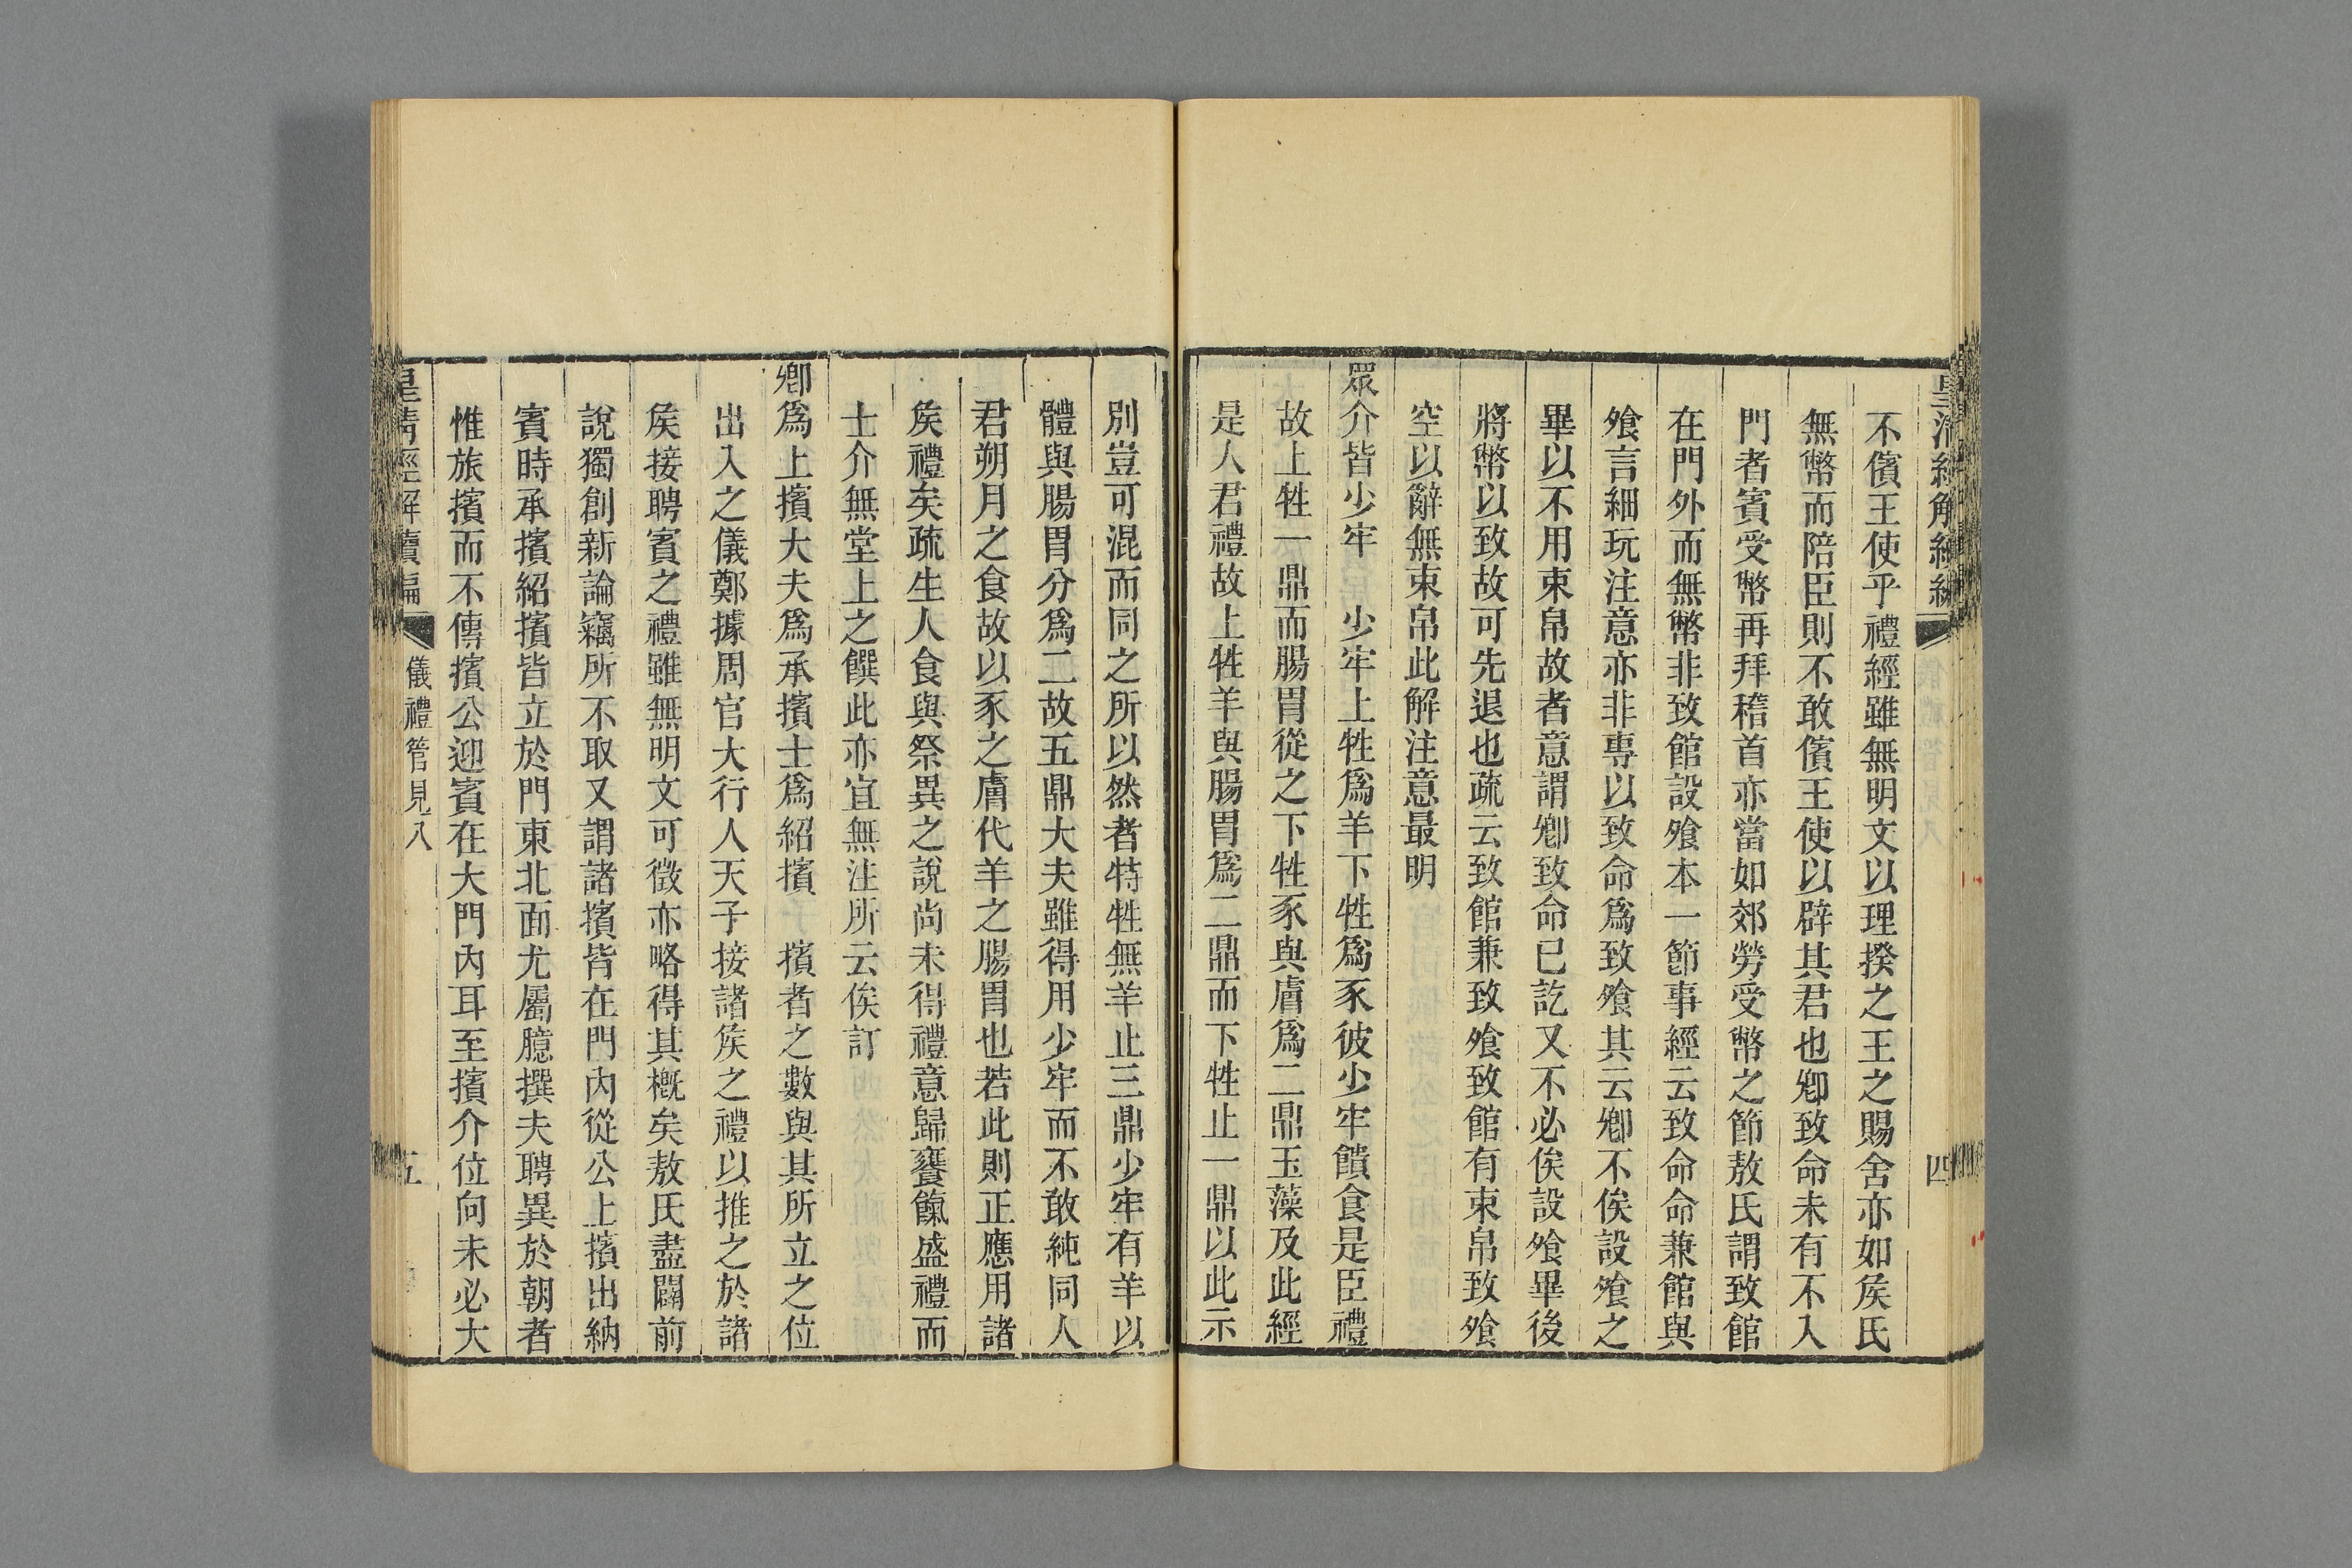 不儐王使乎禮經雖無明文以理揆之王之賜舍亦如矦氏
無幣而陪臣則不敢儐王使以辟其君也卿致命未有不入
門者賓受幣再拜稽首亦當如郊勞受幣之節敖氏謂致館
在門外而無幣非致館設飧本一節事經云致命命兼館與
飧言細玩注意亦非專以致命爲致飧其云卿不俟設飧之
畢以不用束帛故者意謂卿致命已訖又不必俟設飧畢後
將幣以致故可先退也疏云致館兼致飧致館有束帛致飧
空以辭無束帛此解注意最明
眾介皆少牢　少牢上牲爲羊下牲爲豕彼少牢饋食是臣禮
故上牲一鼎而腸胃從之下牲豕與膚爲二鼎玉藻及此經
是人君禮故上牲羊與腸胃爲二鼎而下牲止一鼎以此示
別豈可混而同之所以然者特牲無羊止三鼎少牢有羊以
體與腸胃分爲二故五鼎大夫雖得用少牢而不敢純同人
君朔月之食故以豕之膚代羊之腸胃也若此則正應用諸
矦禮矣疏生人食與祭異之說尚未得禮意歸饔餼盛禮而
士介無堂上之饌此亦宜無注所云俟訂
卿爲上擯大夫爲承擯士爲紹擯　擯者之數與其所立之位
出入之儀鄭據周官大行人天子接諸矦之禮以推之於諸
矦接聘賓之禮雖無明文可徵亦略得其概矣敖氏盡闢前
說獨創新論竊所不取又謂諸擯皆在門內從公上擯出納
賓時承擯紹擯皆立於門東北面尤屬臆撰夫聘異於朝者
惟旅擯而不傳擯公迎賓在大門內耳至擯介位向未必大
皇清經解續編　儀禮管見八　五